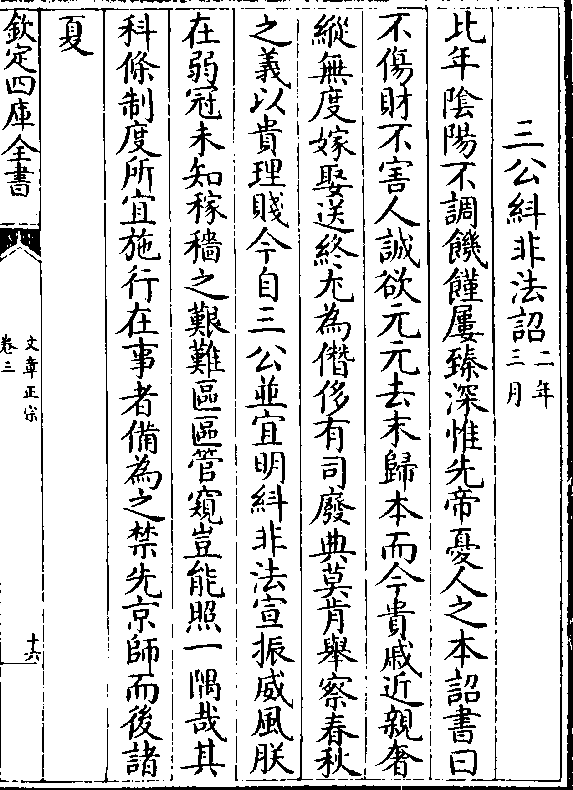 三公糾非法詔二年
三月
比年陰陽不調饑饉屢臻深惟先帝憂人之本詔書曰
不傷財不害人誠欲元元去末歸本而今貴戚近親奢
縱無度嫁娶送終尤為僭侈有司廢典莫肯舉察春秋
之義以貴理賤今自三公並宜明糾非法宣振威風朕
在弱冠未知稼穡之艱難區區管窺豈能照一隅哉其
科條制度所宜施行在事者備為之禁先京師而後諸
夏
欽定四庫全書
文章正宗
卷三
十六